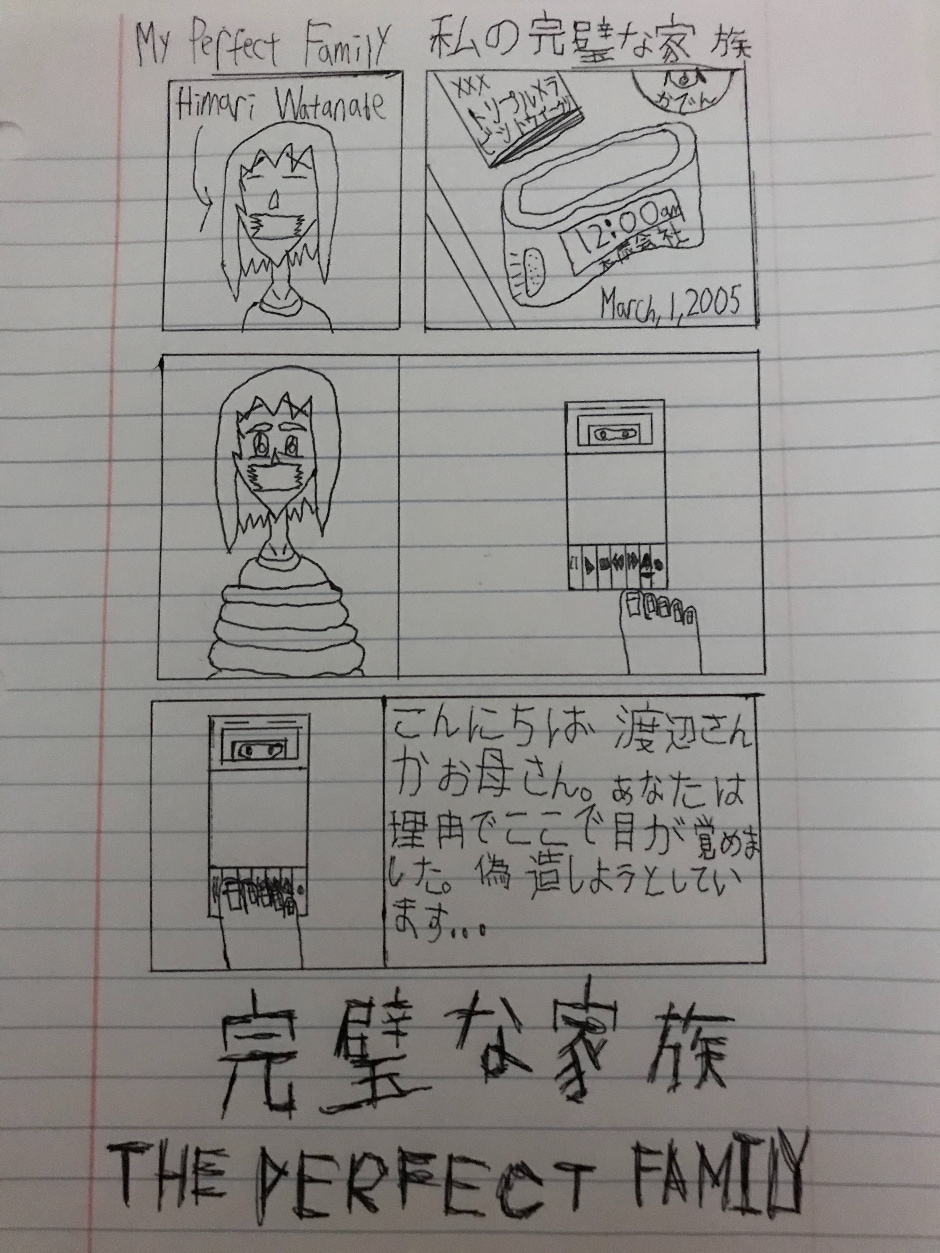 My Perfect Family 私の完璧な家族
Himari Watanabe
XXX
トリプルメラ
かでん
12:00am
会社
March,1,2005
こんにちは 渡辺さん
かお母さん。あなたは
理由でここで目が覚めま
した。偽造しようとしてい
ます...
完璧な家族
THE PERFECT FAMILY